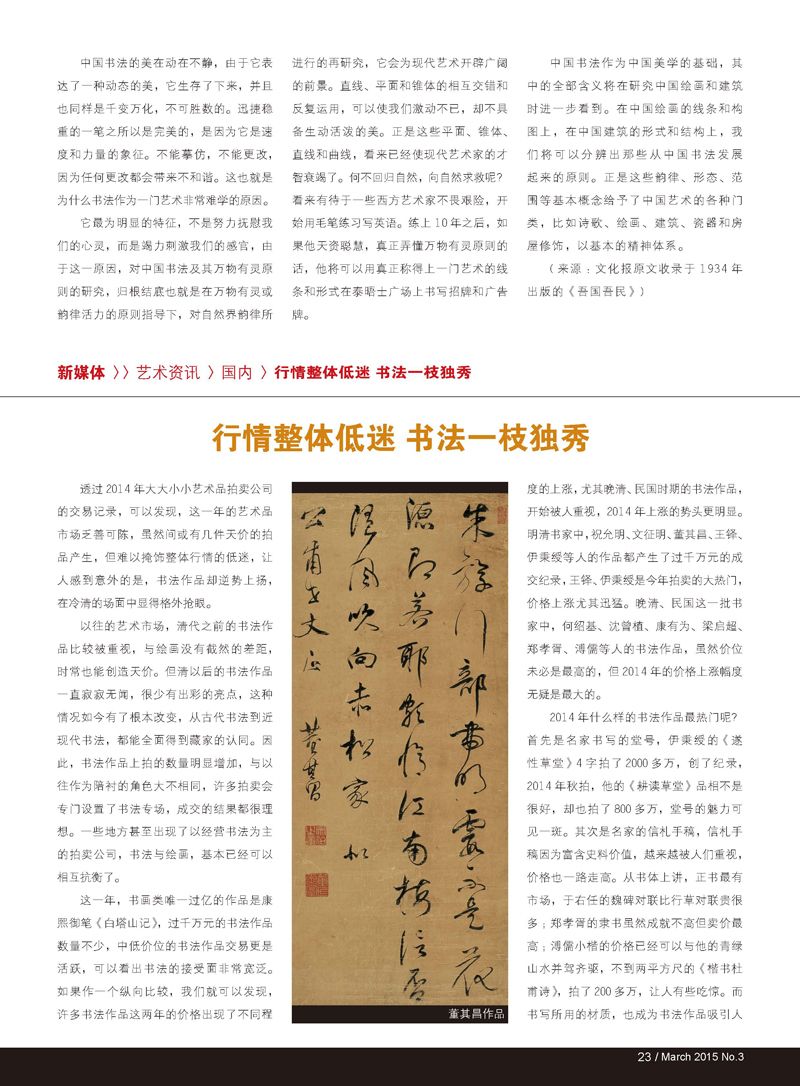 中国书法的美在动在不静，由于它表
达了一种动态的美，它生存了下来，并且
也同样是千变万化，不可胜数的。迅捷稳
重的一笔之所以是完美的，是因为它是速
度和力量的象征。不能摹仿，不能更改，
因为任何更改都会带来不和谐。这也就是
为什么书法作为一门艺术非常难学的原因。
它最为明显的特征，不是努力抚慰我
们的心灵，而是竭力刺激我们的感官，由
于这一原因，对中国书法及其万物有灵原
则的研究，归根结底也就是在万物有灵或
韵律活力的原则指导下，对自然界韵律所
进行的再研究，它会为现代艺术开辟广阔
的前景。直线、平面和锥体的相互交错和
反复运用，可以使我们激动不已，却不具
备生动活泼的美。正是这些平面、锥体、
直线和曲线，看来已经使现代艺术家的才
智衰竭了。何不回归自然，向自然求救呢？
看来有待于一些西方艺术家不畏艰险，开
始用毛笔练习写英语。练上 10 年之后，如
果他天资聪慧，真正弄懂万物有灵原则的
话，他将可以用真正称得上一门艺术的线
条和形式在泰晤士广场上书写招牌和广告
牌。
中国书法作为中国美学的基础，其
中的全部含义将在研究中国绘画和建筑
时进一步看到。在中国绘画的线条和构
图上，在中国建筑的形式和结构上，我
们将可以分辨出那些从中国书法发展
起来的原则。正是这些韵律、形态、范
围等基本概念给予了中国艺术的各种门
类，比如诗歌、绘画、建筑、瓷器和房
屋修饰，以基本的精神体系。
（来源：文化报原文收录于 1934 年
出版的《吾国吾民》）
新媒体 〉〉艺术资讯 〉国内 〉行情整体低迷 书法一枝独秀
行情整体低迷 书法一枝独秀
透过 2014 年大大小小艺术品拍卖公司
的交易记录，可以发现，这一年的艺术品
市场乏善可陈，虽然间或有几件天价的拍
品产生，但难以掩饰整体行情的低迷，让
人感到意外的是，书法作品却逆势上扬，
在冷清的场面中显得格外抢眼。
以往的艺术市场，清代之前的书法作
品比较被重视，与绘画没有截然的差距，
时常也能创造天价。但清以后的书法作品
一直寂寂无闻，很少有出彩的亮点，这种
情况如今有了根本改变，从古代书法到近
现代书法，都能全面得到藏家的认同。因
此，书法作品上拍的数量明显增加，与以
往作为陪衬的角色大不相同，许多拍卖会
专门设置了书法专场，成交的结果都很理
想。一些地方甚至出现了以经营书法为主
的拍卖公司，书法与绘画，基本已经可以
相互抗衡了。
这一年，书画类唯一过亿的作品是康
熙御笔《白塔山记》，过千万元的书法作品
数量不少，中低价位的书法作品交易更是
活跃，可以看出书法的接受面非常宽泛。
如果作一个纵向比较，我们就可以发现，
许多书法作品这两年的价格出现了不同程
董其昌作品
度的上涨，尤其晚清、民国时期的书法作品，
开始被人重视，2014 年上涨的势头更明显。
明清书家中，祝允明、文征明、董其昌、王铎、
伊秉绶等人的作品都产生了过千万元的成
交纪录，王铎、伊秉绶是今年拍卖的大热门，
价格上涨尤其迅猛。晚清、民国这一批书
家中，何绍基、沈曾植、康有为、梁启超、
郑孝胥、溥儒等人的书法作品，虽然价位
未必是最高的，但 2014 年的价格上涨幅度
无疑是最大的。
2014 年什么样的书法作品最热门呢？
首先是名家书写的堂号，伊秉绶的《遂
性草堂》4 字拍了 2000 多万，创了纪录，
2014 年秋拍，他的《耕读草堂》品相不是
很好，却也拍了 800 多万，堂号的魅力可
见一斑。其次是名家的信札手稿，信札手
稿因为富含史料价值，越来越被人们重视，
价格也一路走高。从书体上讲，正书最有
市场，于右任的魏碑对联比行草对联贵很
多；郑孝胥的隶书虽然成就不高但卖价最
高；溥儒小楷的价格已经可以与他的青绿
山水并驾齐驱，不到两平方尺的《楷书杜
甫诗》，拍了 200 多万，让人有些吃惊。而
书写所用的材质，也成为书法作品吸引人
23 / March 2015 No.3